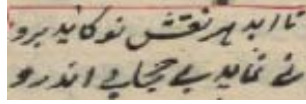 تا ابد هر نقش نو کاید برو
می نماید بی حجابی اندرو